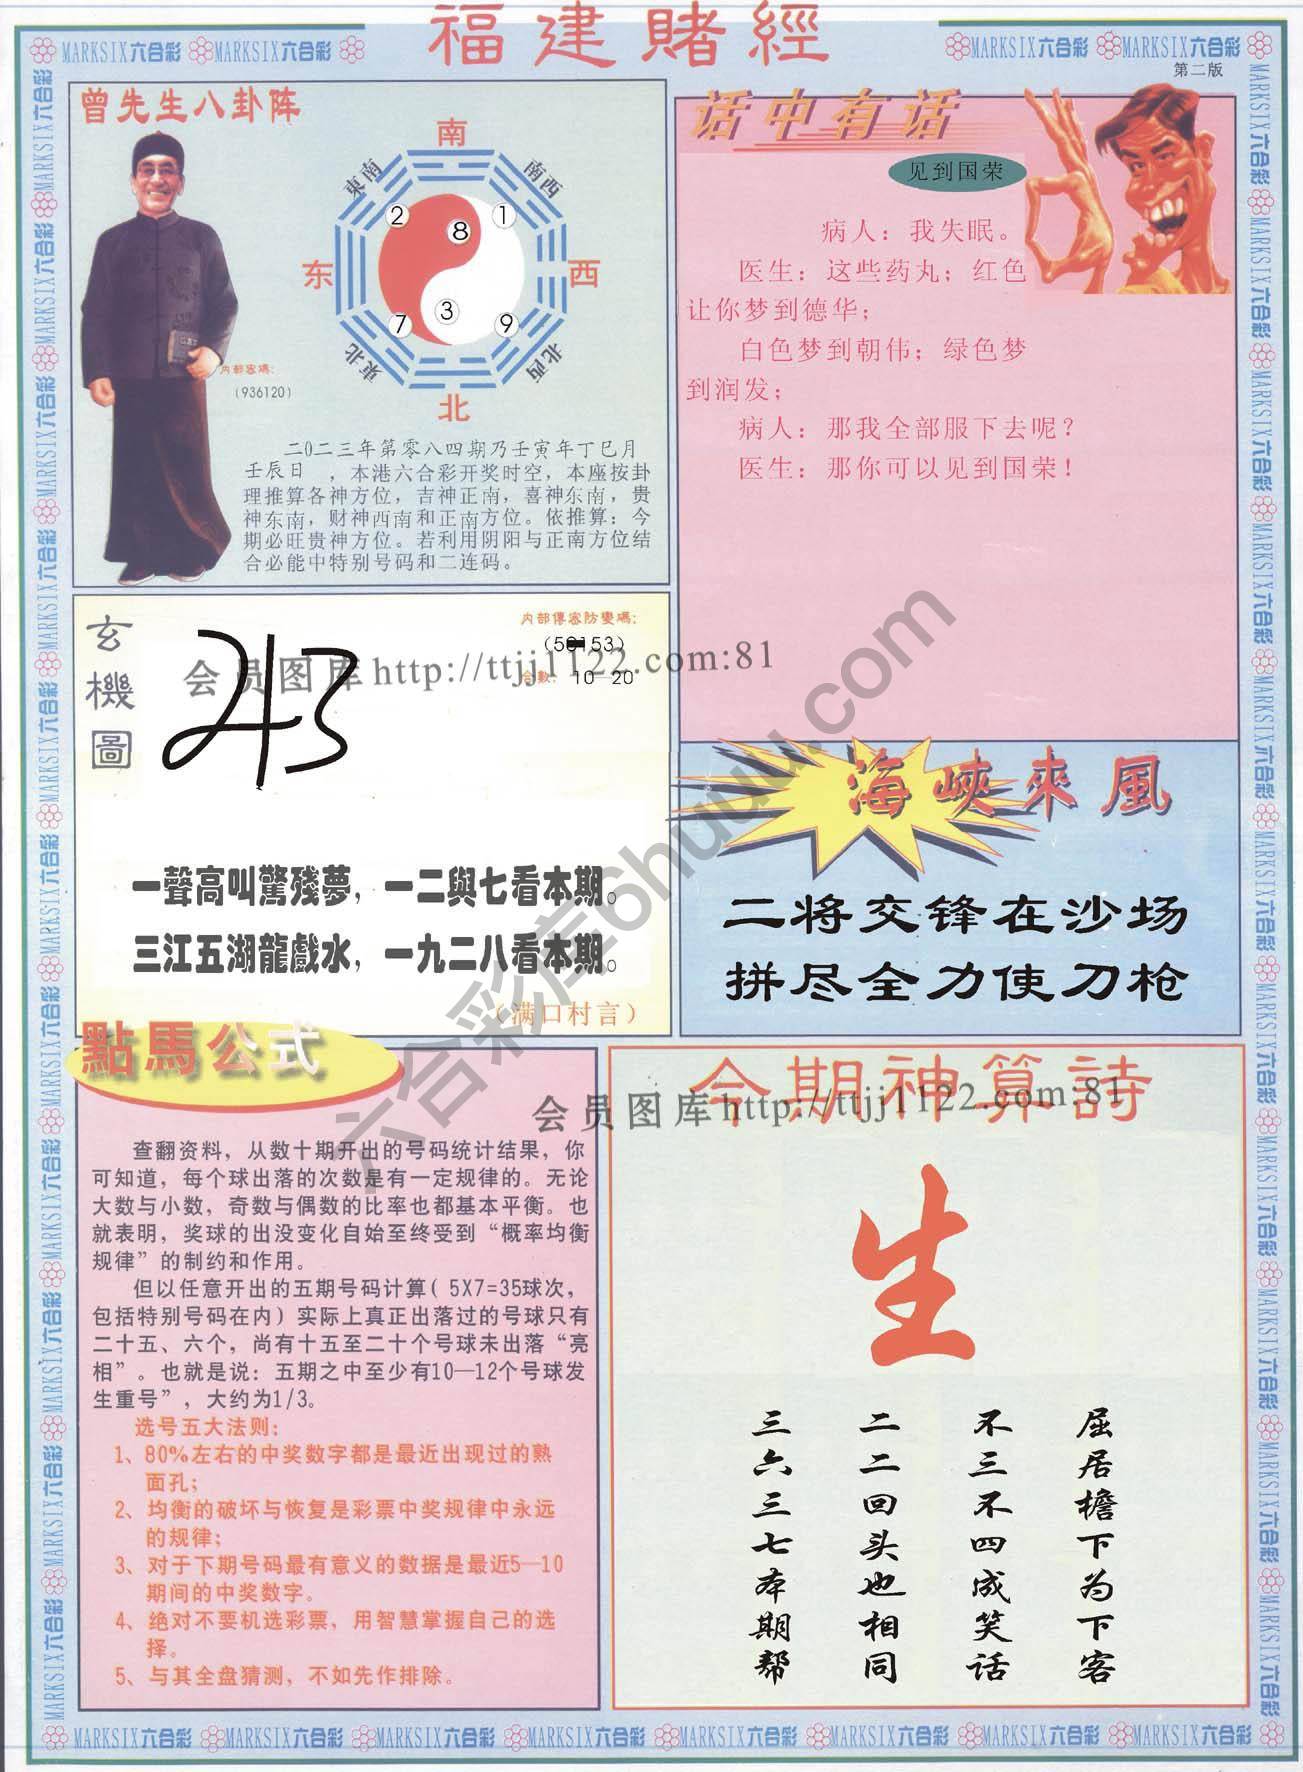 福建賭經
MARKSIX六合彩 MARKSIX六合彩
MARKSIX六合彩 MARKSIX六合彩
第二版
曾先生八卦阵
南
東南
南西
2
8
1
东
西
7
3
9
東北
北西
北
内部密碼:
(936120)
二0二三年第零八四期乃壬寅年丁巳月
壬辰日 ，本港六合彩开奖时空，本座按卦
理推算各神方位，吉神正南，喜神东南，贵
神东南，财神西南和正南方位。依推算：今
期必旺贵神方位。若利用阴阳与正南方位结
合必能中特别号码和二连码。
话中有话
见到国荣
病人：我失眠。
医生：这些药丸；红色
让你梦到德华；
白色梦到朝伟；绿色梦
到润发；
病人：那我全部服下去呢？
医生：那你可以见到国荣！
玄機圖
内部傳密防變碼:
合數: 10—20
会员图库http://ttjj1122.com:81
一聲高叫驚殘夢，一二與七看本期。
三江五湖龍戲水，一九二八看本期。
（满口村言）
海峽來風
二将交锋在沙场
拼尽全力使刀枪
六合彩库6huuu.com
點馬公式
查翻资料，从数十期开出的号码统计结果，你
可知道，每个球出落的次数是有一定规律的。无论
大数与小数，奇数与偶数的比率也都基本平衡。也
就表明，奖球的出没变化自始至终受到“概率均衡
规律”的制约和作用。
但以任意开出的五期号码计算( 5X7=35球次，
包括特别号码在内）实际上真正出落过的号球只有
二十五、六个，尚有十五至二十个号球未出落“亮
相”。也就是说：五期之中至少有10—12个号球发
生重号”，大约为1/3。
选号五大法则:
1、80%左右的中奖数字都是最近出现过的熟
面孔;
2、均衡的破坏与恢复是彩票中奖规律中永远
的规律;
3、对于下期号码最有意义的数据是最近5—10
期间的中奖数字。
4、绝对不要机选彩票，用智慧掌握自己的选
择。
5、与其全盘猜测，不如先作排除。
今期神算詩
会员图库http://ttjj1122.com:81
生
屈居檐下为下客
不三不四成笑话
二二回头也相同
三六三七本期帮
MARKSIX六合彩 MARKSIX六合彩 MARKSIX六合彩 MARKSIX六合彩 MARKSIX六合彩 MARKSIX六合彩 MARKSIX六合彩 MARKSIX六合彩